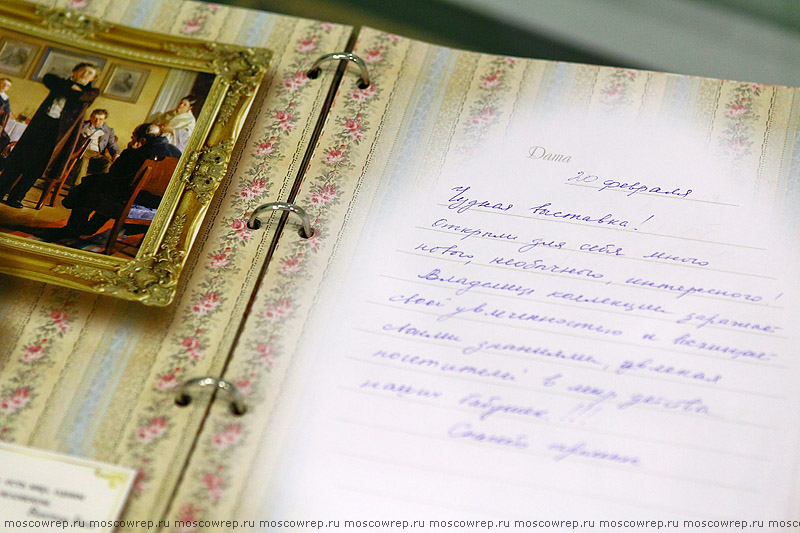 Дата
20 февраля
Чудная выставка!
Открыли для себя много
нового, необычного, интересного!
Владелица коллекции заражает
своей увлеченностью и восхищает
своими знаниями, увлекая
посетителей в мир детства
наших бабушек !!!
Спасибо
moscowrep.ru moscowrep.ru moscowrep.ru moscowrep.ru moscowrep.ru moscowrep.ru moscowrep.ru moscowrep.ru moscowrep.ru mosco